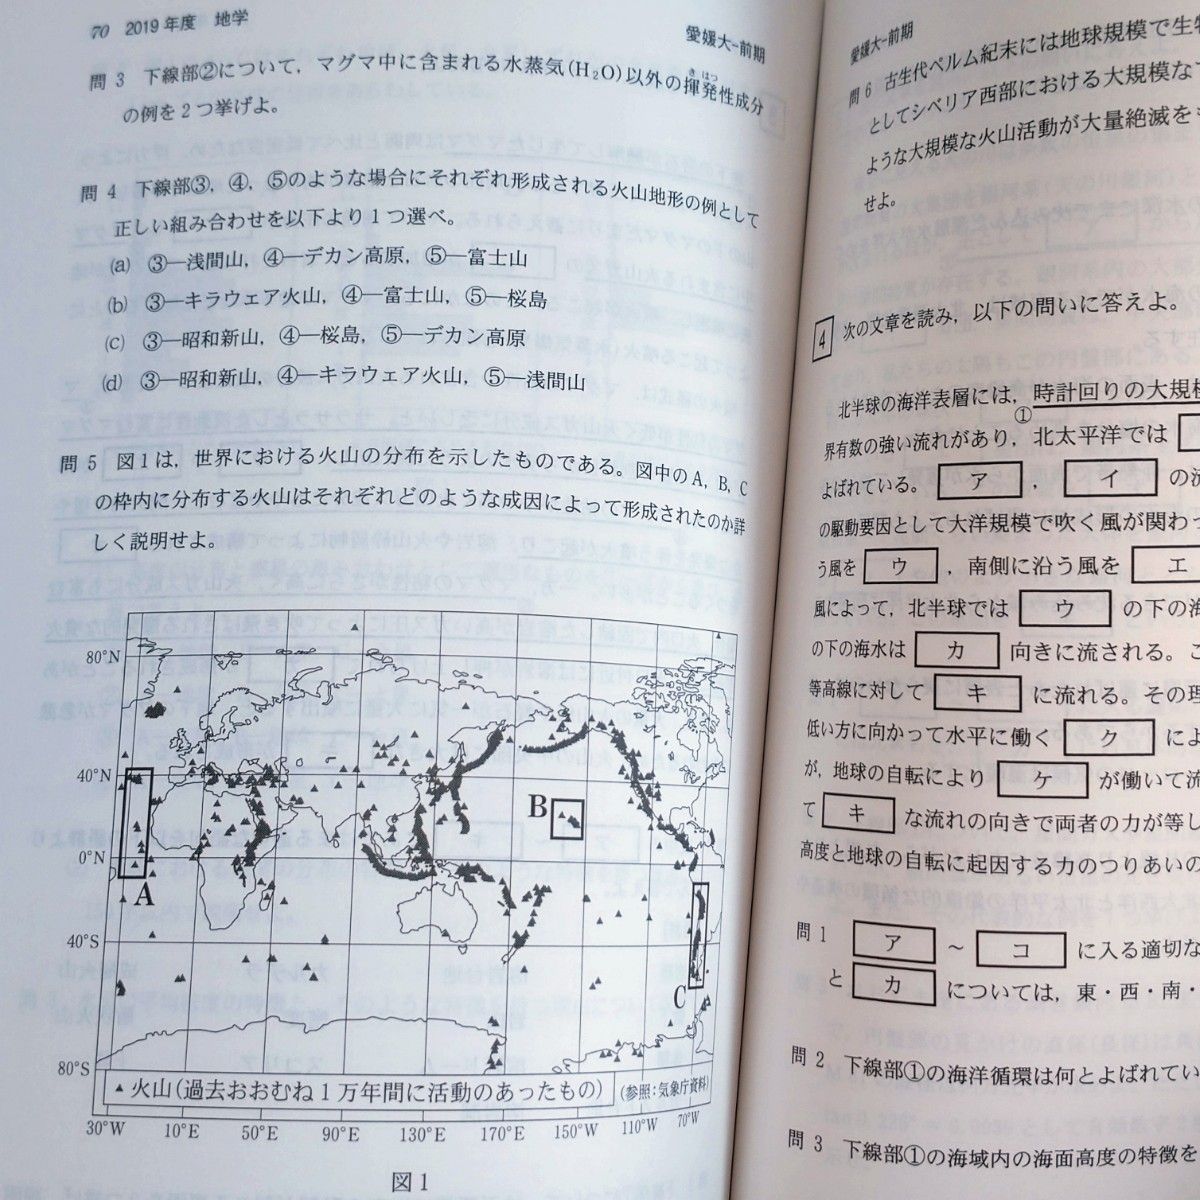 70 2019年度 地学
愛媛大-前期
問3 下線部②について，マグマ中に含まれる水蒸気(H₂O)以外の揮発性成分
きはつ
の例を2つ挙げよ。
問4 下線部③，④，⑤のような場合にそれぞれ形成される火山地形の例として
正しい組み合わせを以下より1つ選べ。
(a) ③—浅間山，④—デカン高原，⑤—富士山
(b) ③—キラウェア火山，④—富士山，⑤—桜島
(c) ③—昭和新山，④—桜島，⑤—デカン高原
(d) ③—昭和新山，④—キラウェア火山，⑤—浅間山
問5 図1は，世界における火山の分布を示したものである。図中のA，B，C
の枠内に分布する火山はそれぞれどのような成因によって形成されたのか詳
しく説明せよ。
80°N
40°N
0°N
40°S
80°S
A
B
C
▲ 火山(過去おおむね1万年間に活動のあったもの)
(参照：気象庁資料)
30°W 10°E 50°E 90°E 130°E 170°E 150°W 110°W 70°W
図1
愛媛大-前期
問6 古生代ペルム紀末には地球規模で生
としてシベリア西部における大規模な
ような大規模な火山活動が大量絶滅を
せよ。
4 次の文章を読み，以下の問いに答えよ。
北半球の海洋表層には，時計回りの大規
①
界有数の強い流れがあり，北太平洋では
よばれている。 ア ， イ の
の駆動要因として大洋規模で吹く風が関わ
う風を ウ ，南側に沿う風を エ
風によって，北半球では ウ の下の海
の下の海水は カ 向きに流される。こ
等高線に対して キ に流れる。その理
低い方に向かって水平に働く ク によ
が，地球の自転により ケ が働いて流
て キ な流れの向きで両者の力が等し
高度と地球の自転に起因する力のつりあいの
問1 ア ～ コ に入る適切な
と カ については，東・西・南・
問2 下線部①の海洋循環は何とよばれてい
問3 下線部①の海域内の海面高度の特徴を